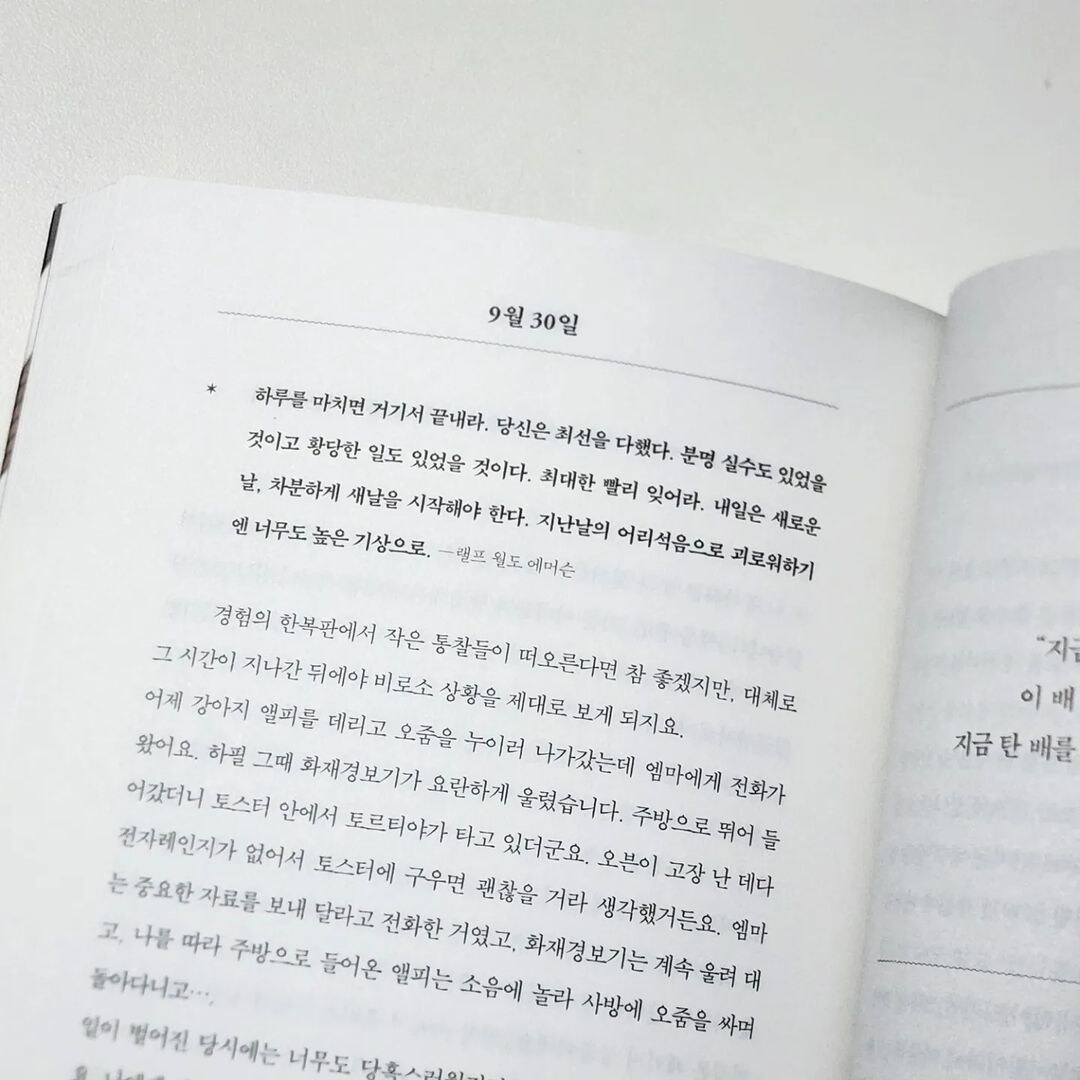 9월 30일
* 하루를 마치면 거기서 끝내라. 당신은 최선을 다했다. 분명 실수도 있었을
것이고 황당한 일도 있었을 것이다. 최대한 빨리 잊어라. 내일은 새로운
날, 차분하게 새날을 시작해야 한다. 지난날의 어리석음으로 괴로워하기
엔 너무도 높은 기상으로. —랠프 월도 에머슨
경험의 한복판에서 작은 통찰들이 떠오른다면 참 좋겠지만, 대체로
그 시간이 지나간 뒤에야 비로소 상황을 제대로 보게 되지요.
어제 강아지 앨피를 데리고 오줌을 누이러 나가갔는데 엠마에게 전화가
왔어요. 하필 그때 화재경보기가 요란하게 울렸습니다. 주방으로 뛰어 들
어갔더니 토스터 안에서 토르티야가 타고 있더군요. 오븐이 고장 난 데다
전자레인지가 없어서 토스터에 구우면 괜찮을 거라 생각했거든요. 엠마
는 중요한 자료를 보내 달라고 전화한 거였고, 화재경보기는 계속 울려 대
고, 나를 따라 주방으로 들어온 앨피는 소음에 놀라 사방에 오줌을 싸며
돌아다니고….
일이 벌어진 당시에는 너무도
“지금
이 배
지금 탄 배를